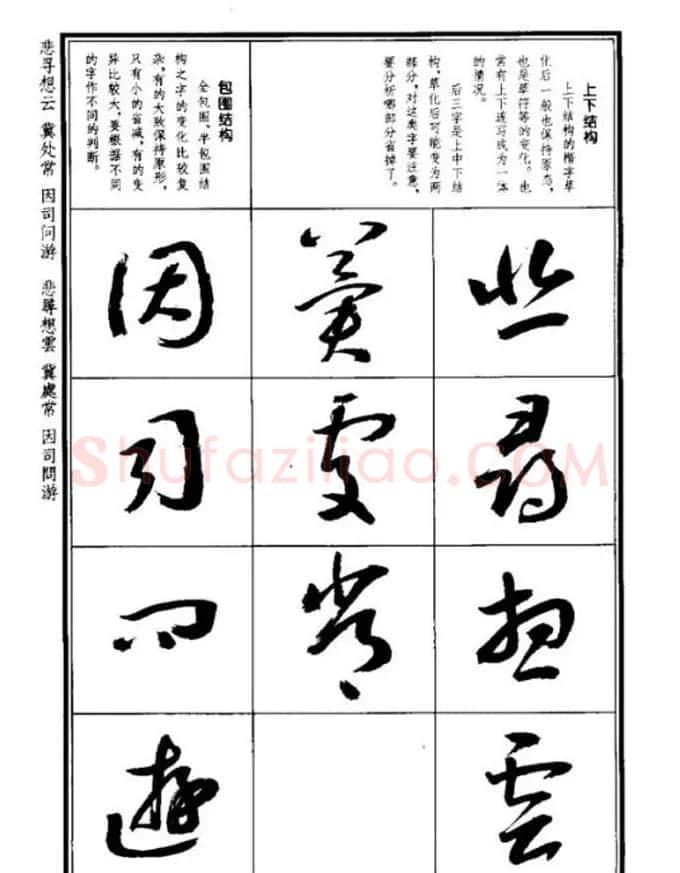 上下结构
上下结构的楷字草
化后一般也保持原态，
也是草符等的变化。也
常有上下连写成为一体
的情况。
后三字是上中下结
构，草化后可能变为两
部分，对这类字要注意，
要分析哪部分省掉了。
包围结构
全包围、半包围结
构之字的变化比较复
杂，有的大致保持原形，
只有小的省减，有的变
异比较大，要根据不同
的字作不同的判断。
悲
尋
想
雲
冀
處
常
因
司
問
游
悲寻想云 冀处常 因司问游 悲尋想雲 冀處常 因司問游
Shufaziliao.COM